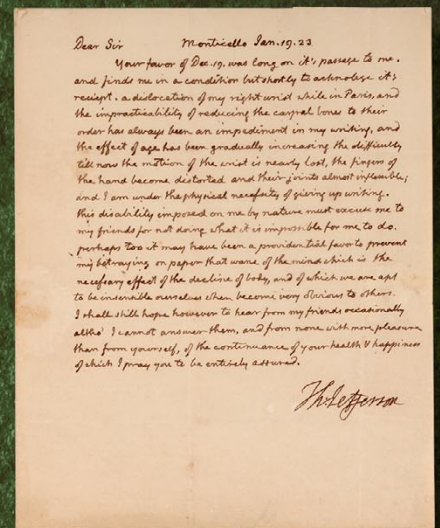 Dear Sir Monticello Jan. 19. 23
Your favor of Dec. 19. was long on it's passage to me.
and finds me in a condition but shortly to acknolege it's
reciept. a dislocation of my right wrist while in Paris, and
the impracticability of reducing the carpal bones to their
order has always been an impediment in my writing, and
the effect of age has been gradually increasing the difficulty
till now the motion of the wrist is nearly lost, the fingers of
the hand become distorted and their joints almost inflexible;
and I am under the physical necessity of giving up writing.
this disability imposed on me by nature must excuse me to
my friends for not doing what it is impossible for me to do.
perhaps too it may have been a providential favor to prevent
my betraying on paper that wane of the mind which is the
necessary effect of the decline of body, and of which we are apt
to be insensible ourselves when become very obvious to others.
I shall still hope however to hear from my friends occasionally
altho' I cannot answer them, and from none with more pleasure
than from yourself, of the continuance of your health & happiness
of which I pray you to be entirely assured.
Th: Jefferson